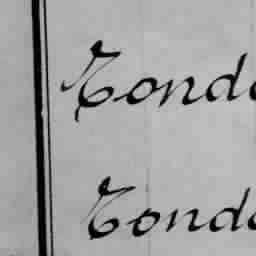 Tondo
Tondo